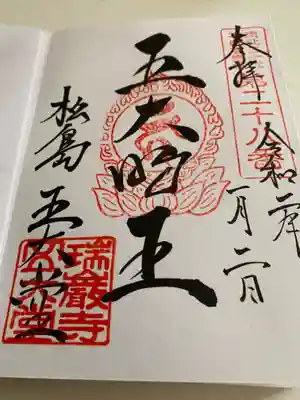 奉拝
令和二年
一月二日
五大明王
松島 五大堂
瑞巌寺
五大堂